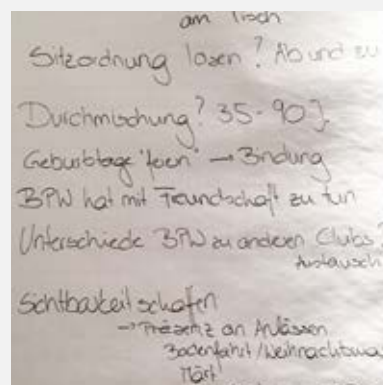 am Tisch
Sitzordnung losen? Ab und zu
Durchmischung? 35-90 J.
Geburtstage "feiern" → Bindung
BPW hat mit Freundschaft zu tun
Unterschiede BPW zu anderen Clubs?
Austausch
Sichtbarkeit schaffen
→ Präsenz an Anlässen
Bodenfahrt/Weihnachtsma
Märt